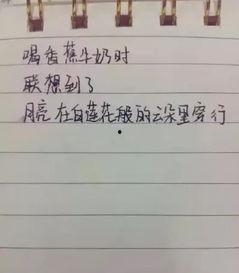 喝香蕉牛奶时
联想到了
月亮在白莲花般的云朵里穿行